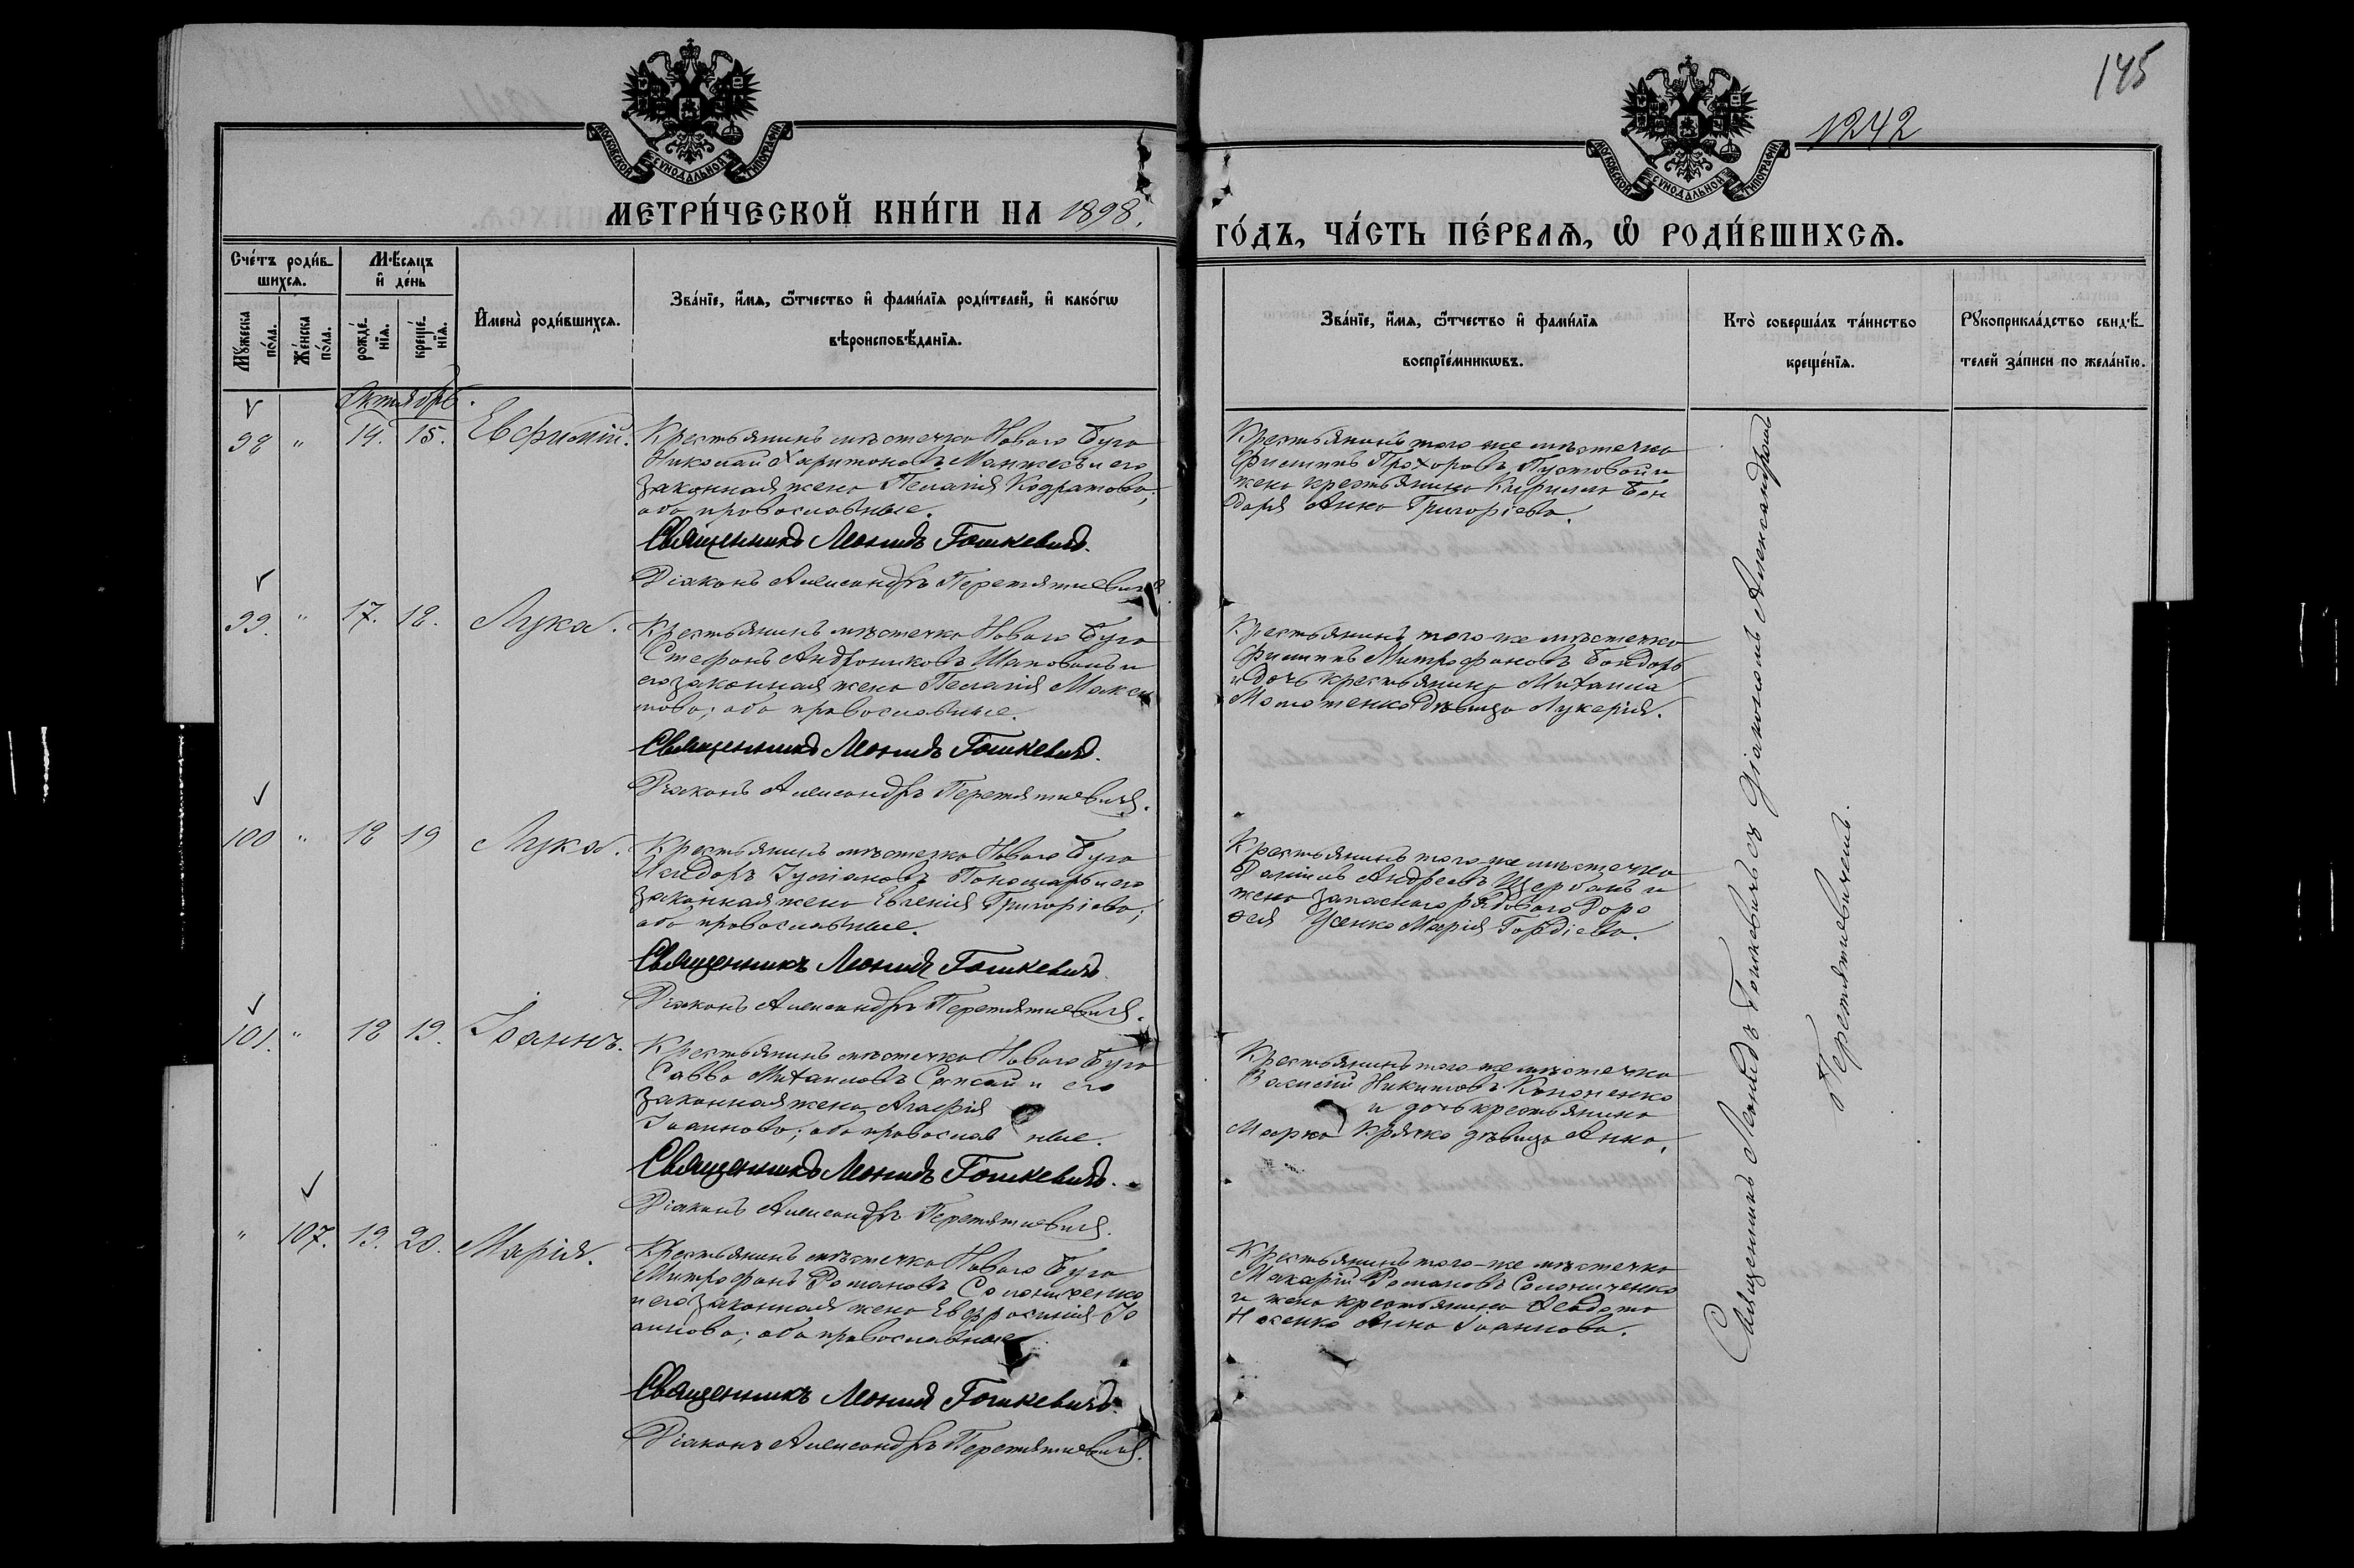 145
1242
МОСКОВСКОЙ СУНОДАЛЬНОЙ ТИПОГРАФІИ
МОСКОВСКОЙ СУНОДАЛЬНОЙ ТИПОГРАФІИ
МЕТРИ́ЧЕСКОЙ КНИ́ГИ НА 1898.
ГО́ДЪ, ЧА́СТЬ ПЕ́РВАѦ, Ѡ РОДИ́ВШИХСѦ.
Сче́тъ роди́в-
шихсѧ.
Мꙋ́жеска по́ла.
Же́нска по́ла.
Мѣ́сѧцъ
и҆ де́нь
рожде́-
нїѧ.
креще́-
нїѧ.
И҆мена̀ роди́вшихсѧ.
Зва́нїе, и҆́мѧ, ѻ҆́тчество и҆ фами́лїѧ роди́телей, и҆ како́гѡ
вѣроисповѣ́данїѧ.
Зва́нїе, и҆́мѧ, ѻ҆́тчество и҆ фами́лїѧ
воспрїе́мникѡвъ.
Кто̀ соверша́лъ та́инство
креще́нїѧ.
Рꙋкоприкла́дство свидѣ́-
телей за́писи по жела́нїю.
Октябрь.
98 " 14. 15. Евфимій.
Крестьянинъ мѣстечка Новаго Буга
Николай Харитоновъ Манжосъ и его
законная жена Пелагія Кодратова;
оба православные.
Священникъ Леонидъ Гошкевичъ.
Діаконъ Александръ Перетяткевичъ.
Крестьянинъ того-же мѣстечка
Филиппъ Прохоровъ Пустовой и
жена крестьянина Кирилла Бон
даря Анна Григоріева.
99. " 17. 18. Лука.
Крестьянинъ мѣстечка Новаго Буга
Стефанъ Андрониковъ Шаповалъ и
его законная жена Пелагія Макси
мова; оба православные.
Священникъ Леонидъ Гошкевичъ.
Діаконъ Александръ Перетяткевичъ.
Крестьянинъ того-же мѣстечка
Филиппъ Митрофановъ Бондарь
и дочь крестьянина Михаила
дѣвица Лукерія.
100 " 18 19 Лука.
Крестьянинъ мѣстечка Новаго Буга
Исидоръ Іуліановъ Пономарь и его
законная жена Евгенія Григоріева;
оба православные.
Священникъ Леонидъ Гошкевичъ
Діаконъ Александръ Перетяткевичъ.
Крестьянинъ того-же мѣстечка
Даніилъ Андреевъ Щербань и
жена запаснаго рядоваго Доро
ѳея Усенко Марія Гордіева.
101. " 18 19. Іоаннъ.
Крестьянинъ мѣстечка Новаго Буга
Савва Михаиловъ и его
законная жена Агафія
Іоаннова; оба православ ные.
Священникъ Леонидъ Гошкевичъ.
Діаконъ Александръ Перетяткевичъ.
Крестьянинъ того-же мѣстечка
Василій Никитовъ Кононенко
и дочь крестьянина
Марка Крячко дѣвица Анна.
" 107. 19. 20. Марія.
Крестьянинъ мѣстечка Новаго Буга
Митрофанъ Романовъ Соломченко
и его законная жена Евфросинія Іо
аннова; оба православные.
Священникъ Леонидъ Гошкевичъ.
Діаконъ Александръ Перетяткевичъ.
Крестьянинъ того-же мѣстечка
Макарій Романовъ
и жена крестьянина Ѳеодота
Носенко Анна Іоаннова.
Священникъ Леонидъ Гошкевичъ съ Діакономъ Александромъ
Перетяткевичемъ.